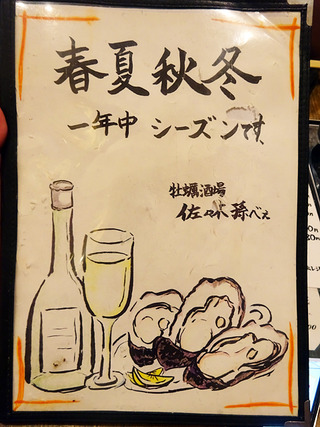 春夏秋冬
一年中 シーズンです
牡蠣酒場
佐々木孫べえ